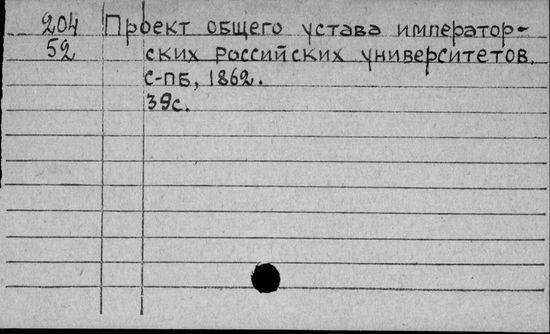 204 Проект общего устава император-
52 ских российских университетов.
С-ПБ, 1862.
39с.